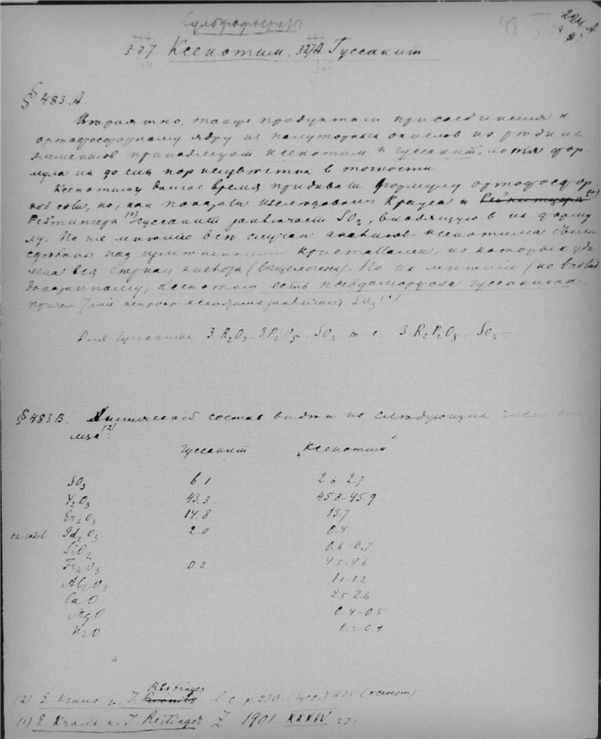 Сульфофосфаты
327 Ксенотим. 327А Гуссакит
§ 483 А.
Вероятно, также продуктами присоединения к
ортофосфорному ядру из полуторных окислов
элементов принадлежат ксенотим и гуссакит, хотя фор-
мула их до сих пор неизвестна в точности.
Ксенотиму долгое время придавали формулу ортофосфор
ной соли, но, как показали исследования Крауса и
Рейтингера (1) гуссакит заключает SO3, входящую в их форму
лу. По их мнению все случаи анализов ксенотима были
сделаны над кристаллами, из которых
вся серная кислота (выщелочена). По их мнению
ксенотим есть псевдоморфоза гуссакита.
Для гуссакита 3 R2O3. 3P2O5. SO3 т. е. 3 R2P2O8. SO3 —
§ 483 В. Химический состав виден из следующих чисел
(2):
гуссакит ксенотим
SO3 6.1 2.6-2.7
Y2O3 43.3 45.8-45.9
Er2O3 14.8 13.7
Gd2O3 2.0 0.4
SiO2 0.6-0.7
Fe2O3 0.2 4.5-4.6
Al2O3 1.1-1.2
CaO 2.5-2.6
MgO 0.4-0.5
H2O
(2) E. Kraus u. J. Reitinger l. c. p. 270 (ксенот)
(1) E. Kraus u. J. Reitinger Z 1901 XXXIV 27